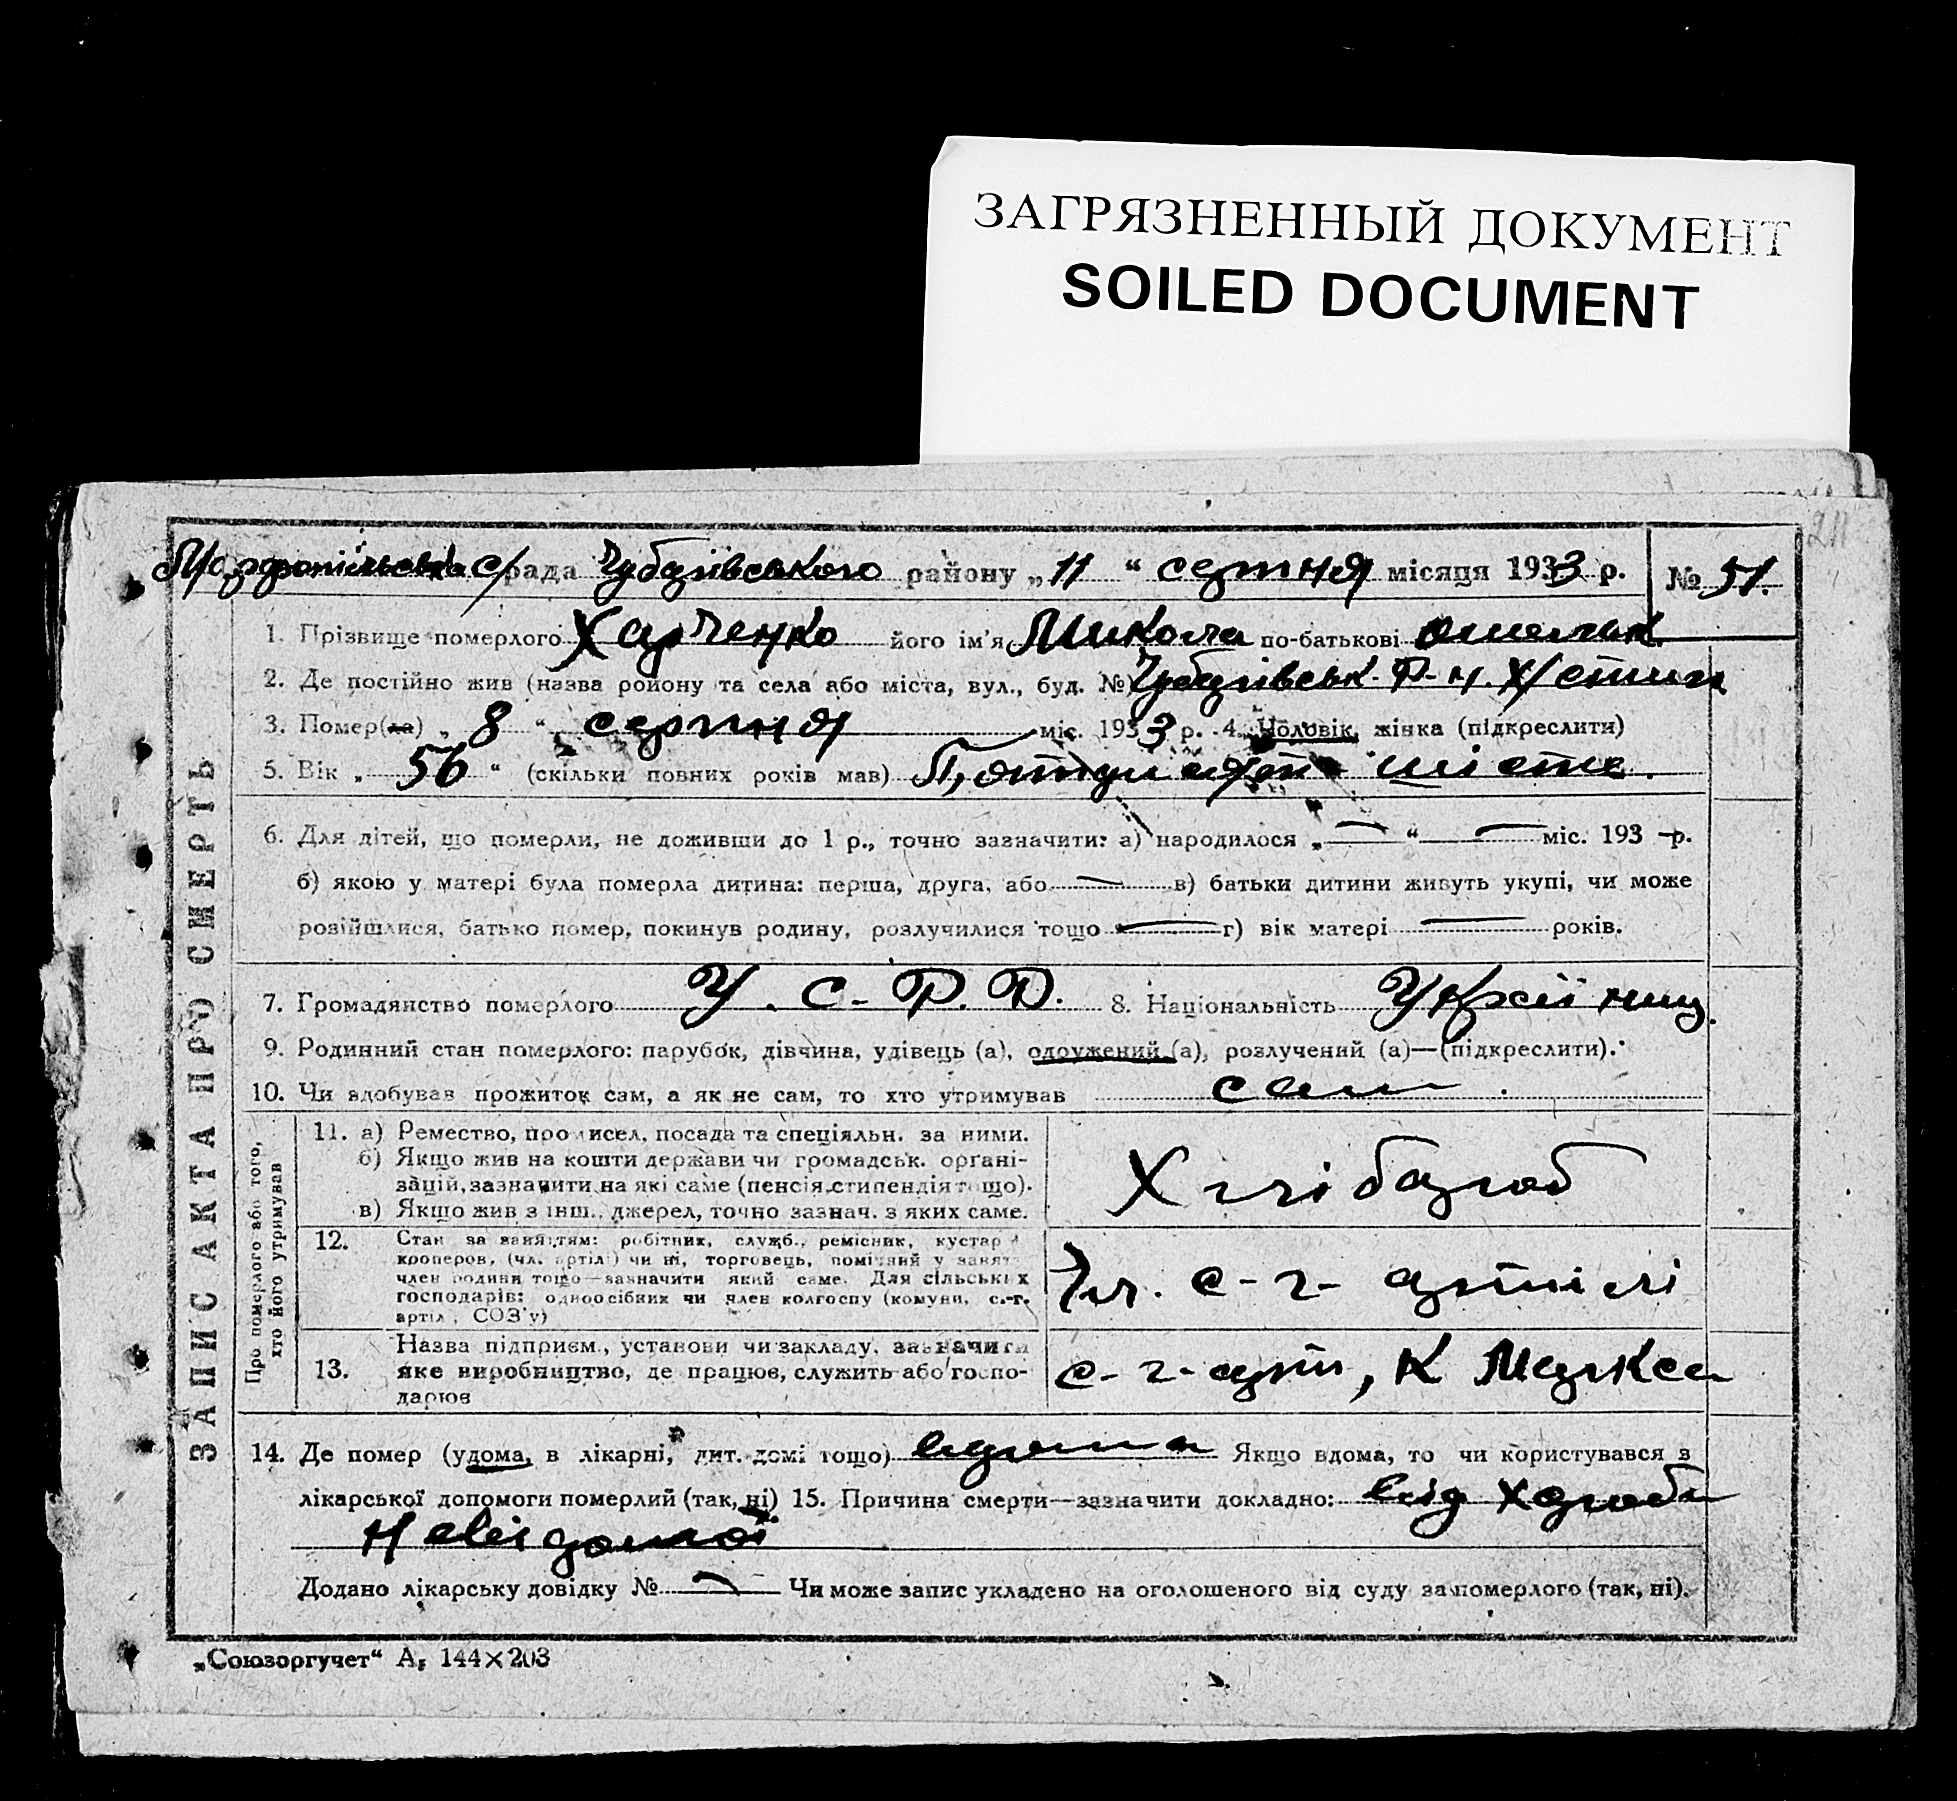 ЗАГРЯЗНЕННЫЙ ДОКУМЕНТ
SOILED DOCUMENT
211
ЗАПИС АКТА ПРО СМЕРТЬ
с/рада Чубарівського району „ 11 “ серпня місяця 1933 р. № 51.
1. Прізвище померлого Харченко його ім'я Микола по-батькові
2. Де постійно жив (назва ройону та села або міста, вул., буд. №) Чубарівськ. р-н.
3. Помер(ла) „ 8 “ серпня міс. 1933 р. 4. Чоловік, жінка (підкреслити)
5. Вік „ 56 “ (скільки повних років мав) П'ятдесят шість.
6. Для дітей, що померли, не доживши до 1 р., точно зазначити: а) народилося „ — “ — міс. 193 — р.
б) якою у матері була померла дитина: перша, друга, або — в) батьки дитини живуть укупі, чи може
розійшлися, батько помер, покинув родину, розлучилися тощо — г) вік матері — років.
7. Громадянство померлого У. С. Р. Р. 8. Національність Українец.
9. Родинний стан померлого: парубок, дівчина, удівець (а), одружений (а), розлучений (а)—(підкреслити).
10. Чи здобував прожиток сам, а як не сам, то хто утримував сам.
Про померлого або того, хто його утримував
11. а) Ремество, промисел, посада та спеціяльн. за ними.
б) Якщо жив на кошти держави чи громадськ. органі-
зацій, зазначити на які саме (пенсія, стипендія тощо).
в) Якщо жив з інш. джерел, точно зазнач. з яких саме.
Хлібароб
12. Стан за заняттям: робітник, служб., ремісник, кустар
кооперов. (чл. артілі) чи ні, торговець, помічний у занят.
член родини тощо—зазначити який саме. Для сільських
господарів: одноосібник чи член колгоспу (комуни, с.-г.
артіл., СОЗ'у)
Чл. с-г- артілі
13. Назва підприєм., установи чи закладу, зазначити
яке виробництво, де працює, служить або госпо-
дарює
с-г-арт, К Маркса
14. Де помер (удома, в лікарні, дит. домі тощо) вдома Якщо вдома, то чи користувався з
лікарської допомоги померлий (так, ні) 15. Причина смерти—зазначити докладно: від хароби
невідомої
Додано лікарську довідку № — Чи може запис укладено на оголошеного від суду за померлого (так, ні).
„Союзоргучет“ А5 144×203